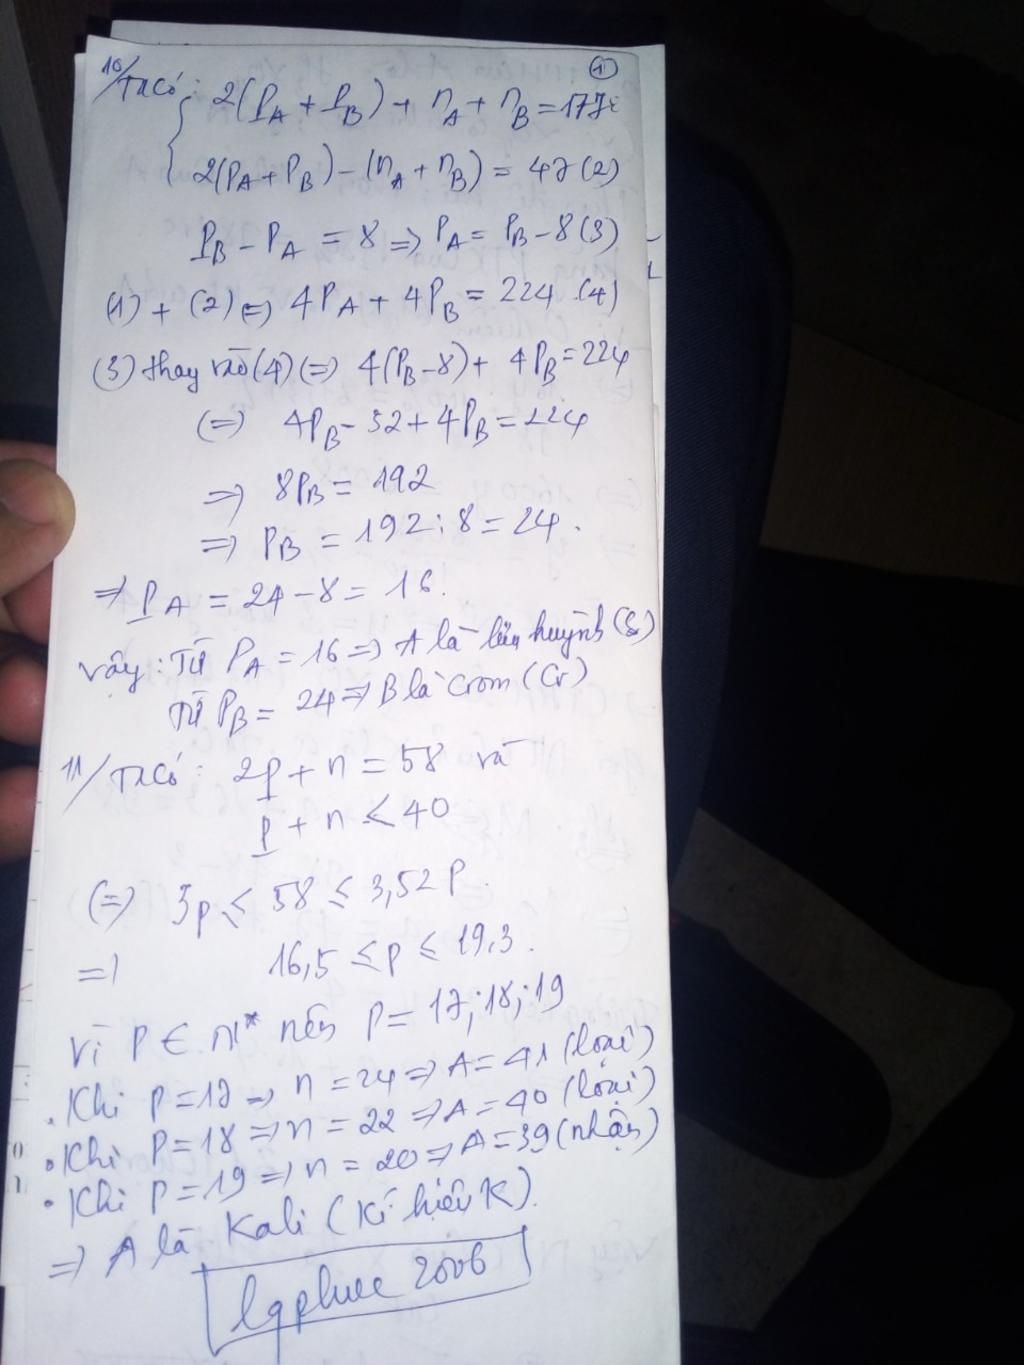 ①
10/ Ta có: 2(PA + PB) + nA + nB = 177
2(PA + PB) - (nA + nB) = 47 (2)
PB - PA = 8 => PA = PB - 8 (3)
(1) + (2) <=> 4PA + 4PB = 224 (4)
(3) thay vào (4) <=> 4(PB - 8) + 4PB = 224
<=> 4PB - 32 + 4PB = 224
=> 8PB = 192
=> PB = 192 : 8 = 24.
=> PA = 24 - 8 = 16.
Vậy: Từ PA = 16 => A là lưu huỳnh (S)
Từ PB = 24 => B là Crom (Cr)
11/ Ta có: 2P + n = 58 và
P + n < 40
<=> 3p ≤ 58 ≤ 3,52 P.
=> 16,5 ≤ p ≤ 19,3.
Vì P ∈ N* nên P = 17; 18; 19
. Khi P = 17 => n = 24 => A = 41 (loại)
• Khi P = 18 => n = 22 => A = 40 (loại)
• Khi P = 19 => n = 20 => A = 39 (nhận)
=> A là Kali (Kí hiệu K).
lqphuc 2006